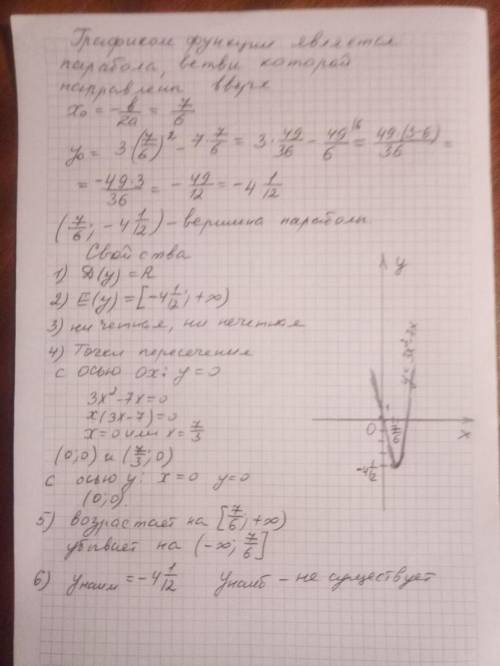 Графиком функции является
парабола, ветви которой
направлены вверх
x₀ = -b/2a = 7/6
y₀ = 3(7/6)² - 7·7/6 = 3·49/36 - 49/6 = 49·(3-6)/36 =
= -49·3/36 = -49/12 = -4 1/12
(7/6; -4 1/12) - вершина параболы.
Свойства
1) D(y) = R
2) E(y) = [-4 1/12; +∞)
3) ни четная, ни нечетная
4) Точки пересечения
с осью ox: y=0
3x²-7x=0
x(3x-7)=0
x=0 или x=7/3
(0;0) и (7/3; 0)
с осью y: x=0 y=0
(0;0).
5) возрастает на [7/6; +∞)
убывает на (-∞; 7/6]
6) yнаим = -4 1/12 yнаиб - не существует
y
y=3x²-7x
0
7/6
x
-4 1/12